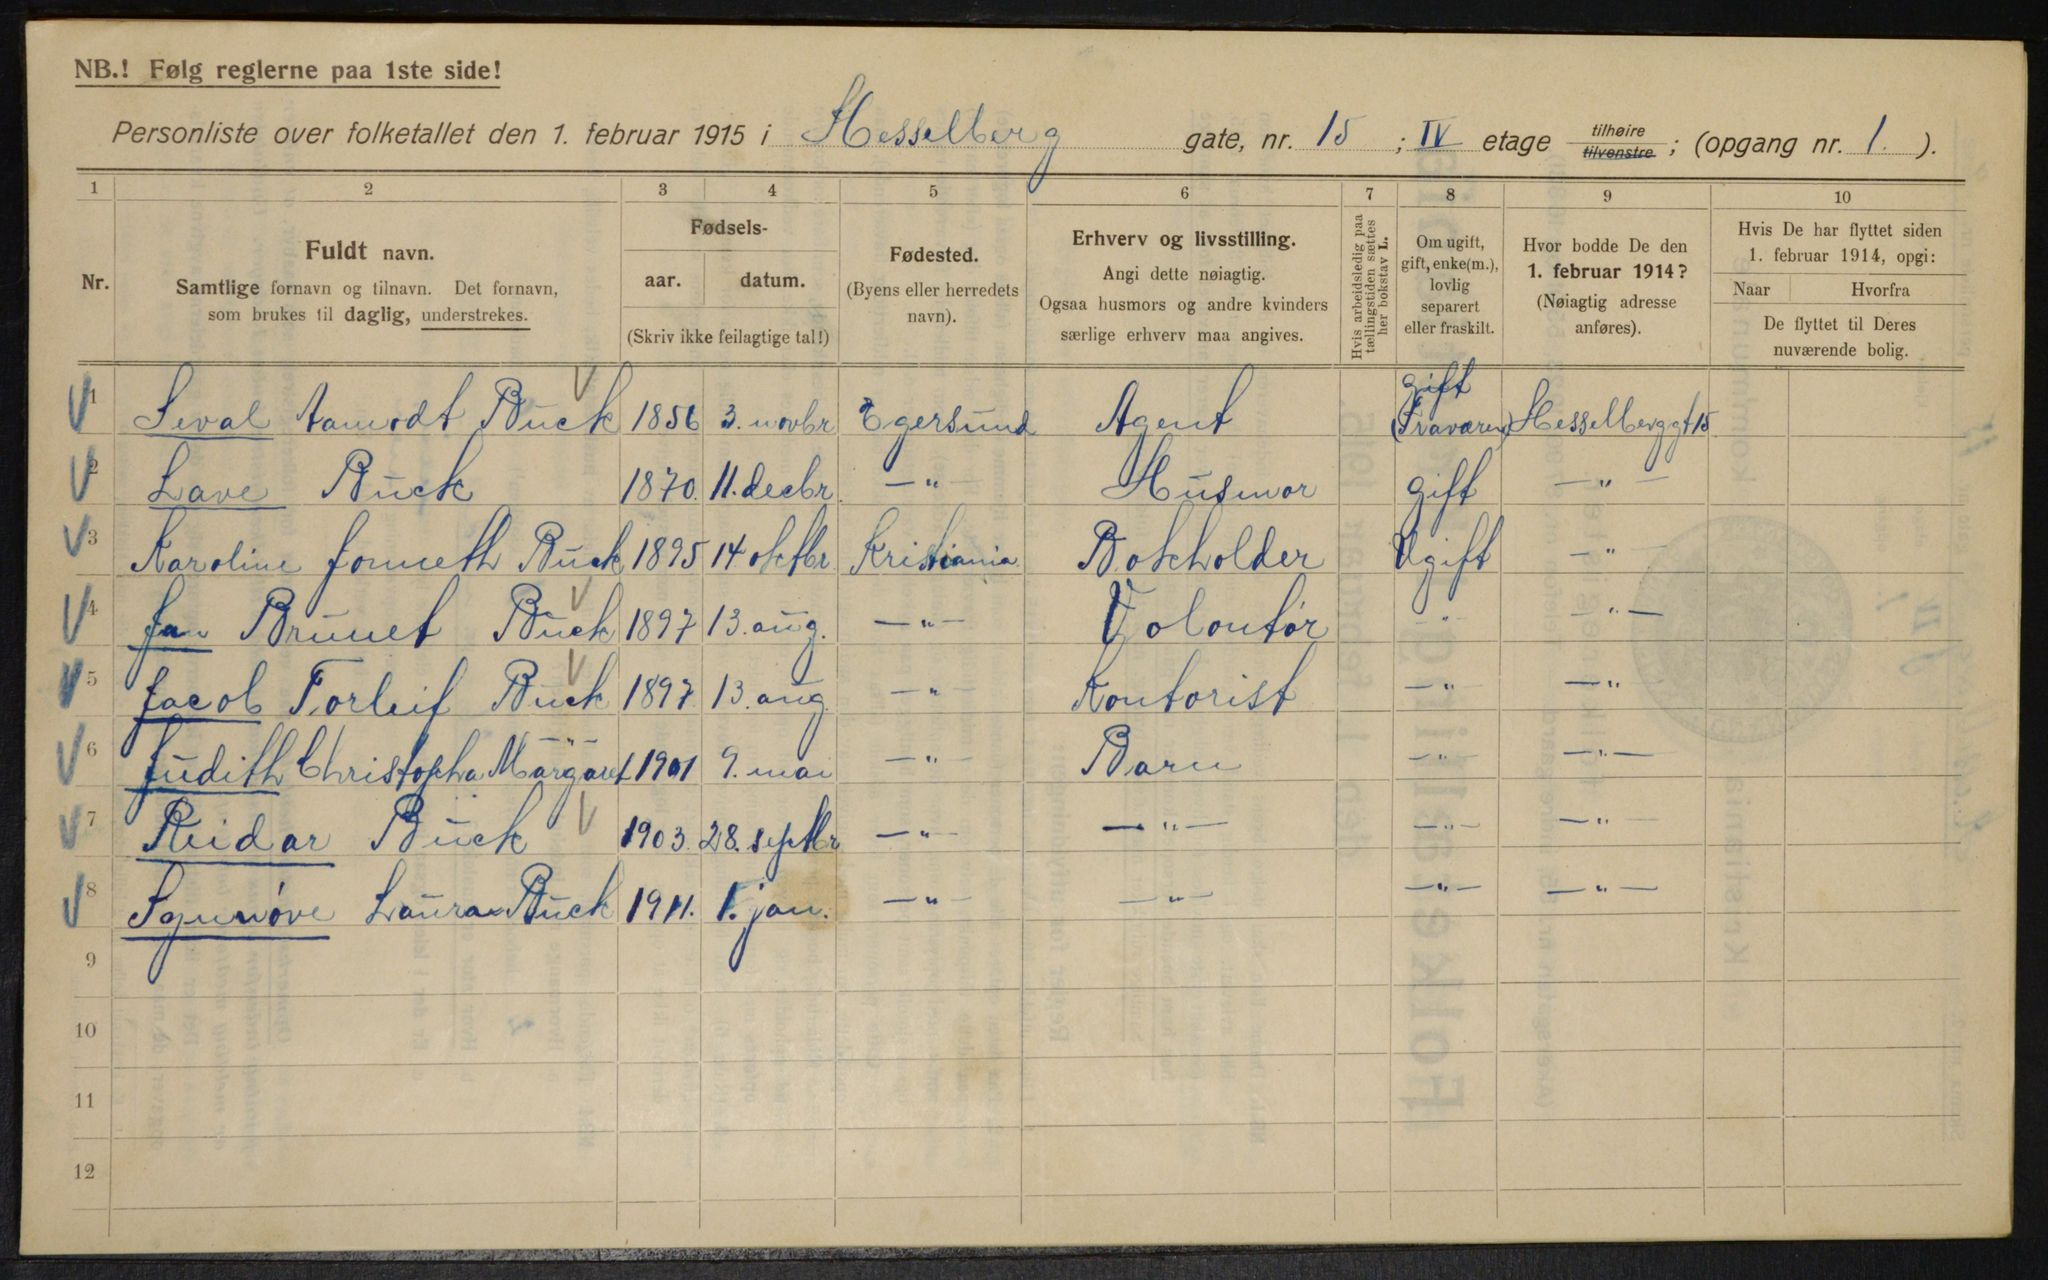 NB.! Følg reglerne paa 1ste side!
Personliste over folketallet den 1. februar 1915 i Hesselberg gate, nr. 15 ; IV etage tilhøire tilvenstre ; (opgang nr. 1. ).
1 2 3 4 5 6 7 8 9 10
Nr.
Fuldt navn.
Samtlige fornavn og tilnavn. Det fornavn,
som brukes til daglig, understrekes.
Fødsels-
aar. datum.
(Skriv ikke feilagtige tal!)
Fødested.
(Byens eller herredets
navn).
Erhverv og livsstilling.
Angi dette nøiagtig.
Ogsaa husmors og andre kvinders
særlige erhverv maa angives.
Hvis arbeidsledig paa
tællingstiden sættes
her bokstav L.
Om ugift,
gift, enke(m.),
lovlig
separert
eller fraskilt.
Hvor bodde De den
1. februar 1914?
(Nøiagtig adresse
anføres).
Hvis De har flyttet siden
1. februar 1914, opgi:
Naar Hvorfra
De flyttet til Deres
nuværende bolig.
1 Seval Aamodt Buck 1856 3. novbr Egersund Agent gift (Fraværen) Hesselberggt 15
2 Lave Buck 1870. 11. decbr. —"— Husmor gift —"—
3 Karoline Buck 1895 14 oktbr. Kristiania Bokholder Ugift —"—
4 Jan Brunet Buck 1897 13. aug. —"— Volontør —"— —"—
5 Jacob Torleif Buck 1897 13. aug. —"— Kontorist —"— —"—
6 Judith Christopha Margaret —"— 1901 9. mai —"— Barn —"— —"—
7 Reidar Buck 1903. 28. septbr —"— —"— —"— —"—
8 Synnøve Laura Buck 1911. 1. jan. —"— —"— —"— —"—
9
10
11
12